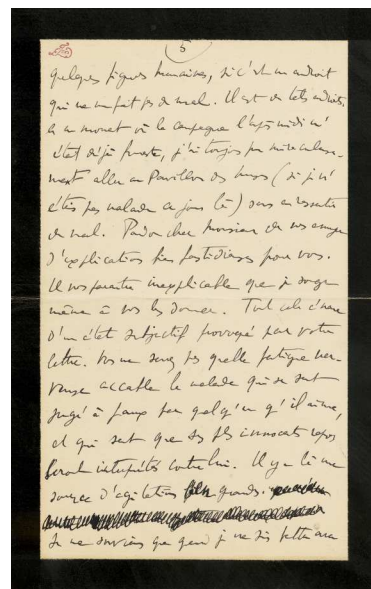 5
quelques figures humaines, si c'est un endroit
qui ne me fait pas de mal. Il est de tels endroits.
à un moment où la campagne l'après midi m'
était déjà funeste, j'ai toujours pu miraculeuse-
ment aller au Pavillon des (si je n'
étais pas malade ce jour là) sans en ressentir
de mal. Pardon cher Monsieur de vous
d'explications bien fastidieuses pour vous.
Il vous paraîtra inexplicable que je songe
même à vous les donner. Tout cela émane
d'un état subjectif provoqué par votre
lettre. Vous ne savez pas quelle fatigue ner-
veuse accable le malade qui se sait
jugé à faux par quelqu'un qu'il aime,
et qui sait que ses plus innocents repos
seront interprétés contre lui. Il y a là une
source d'agitations grandes.
Je me souviens que quand je